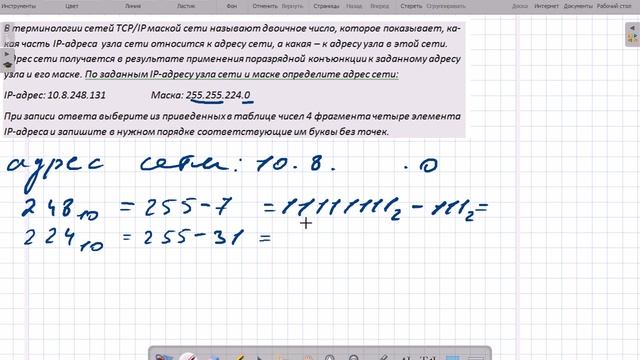 Инструменты Цвет Линия Фон Отменить Вернуть Страницы Назад Далее Стереть Сгруппировать Доска Документы Рабочий стол
В терминологии сетей TCP/IP маской сети называют двоичное число, которое показывает, ка-
кая часть IP-адреса узла сети относится к адресу сети, а какая – к адресу узла в этой сети.
Адрес сети получается в результате применения поразрядной конъюнкции к заданному адресу
узла и его маске. По заданным IP-адресу узла сети и маске определите адрес сети:
IP-адрес: 10.8.248.131 Маска: 255.255.224.0
При записи ответа выберите из приведенных в таблице чисел 4 фрагмента четыре элемента
IP-адреса и запишите в нужном порядке соответствующие им буквы без точек.
адрес сети: 10. 8. . 0
248₁₀ = 255-7 = 11111111₂ - 111₂ =
224₁₀ = 255-31 =